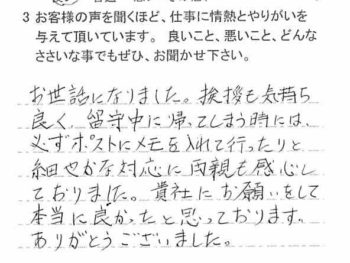 3 お客様の声を聞くほど、仕事に情熱とやりがいを
与えて頂いています。 良いこと、悪いこと、どんな
ささいな事でもぜひ、お聞かせ下さい。
お世話になりました。挨拶も気持ち
良く、留守中に帰ってしまう時には、
必ずポストにメモを入れて行ったりと
細やかな対応に両親も感心し
ておりました。貴社にお願いをして
本当に良かったと思っております。
ありがとうございました。